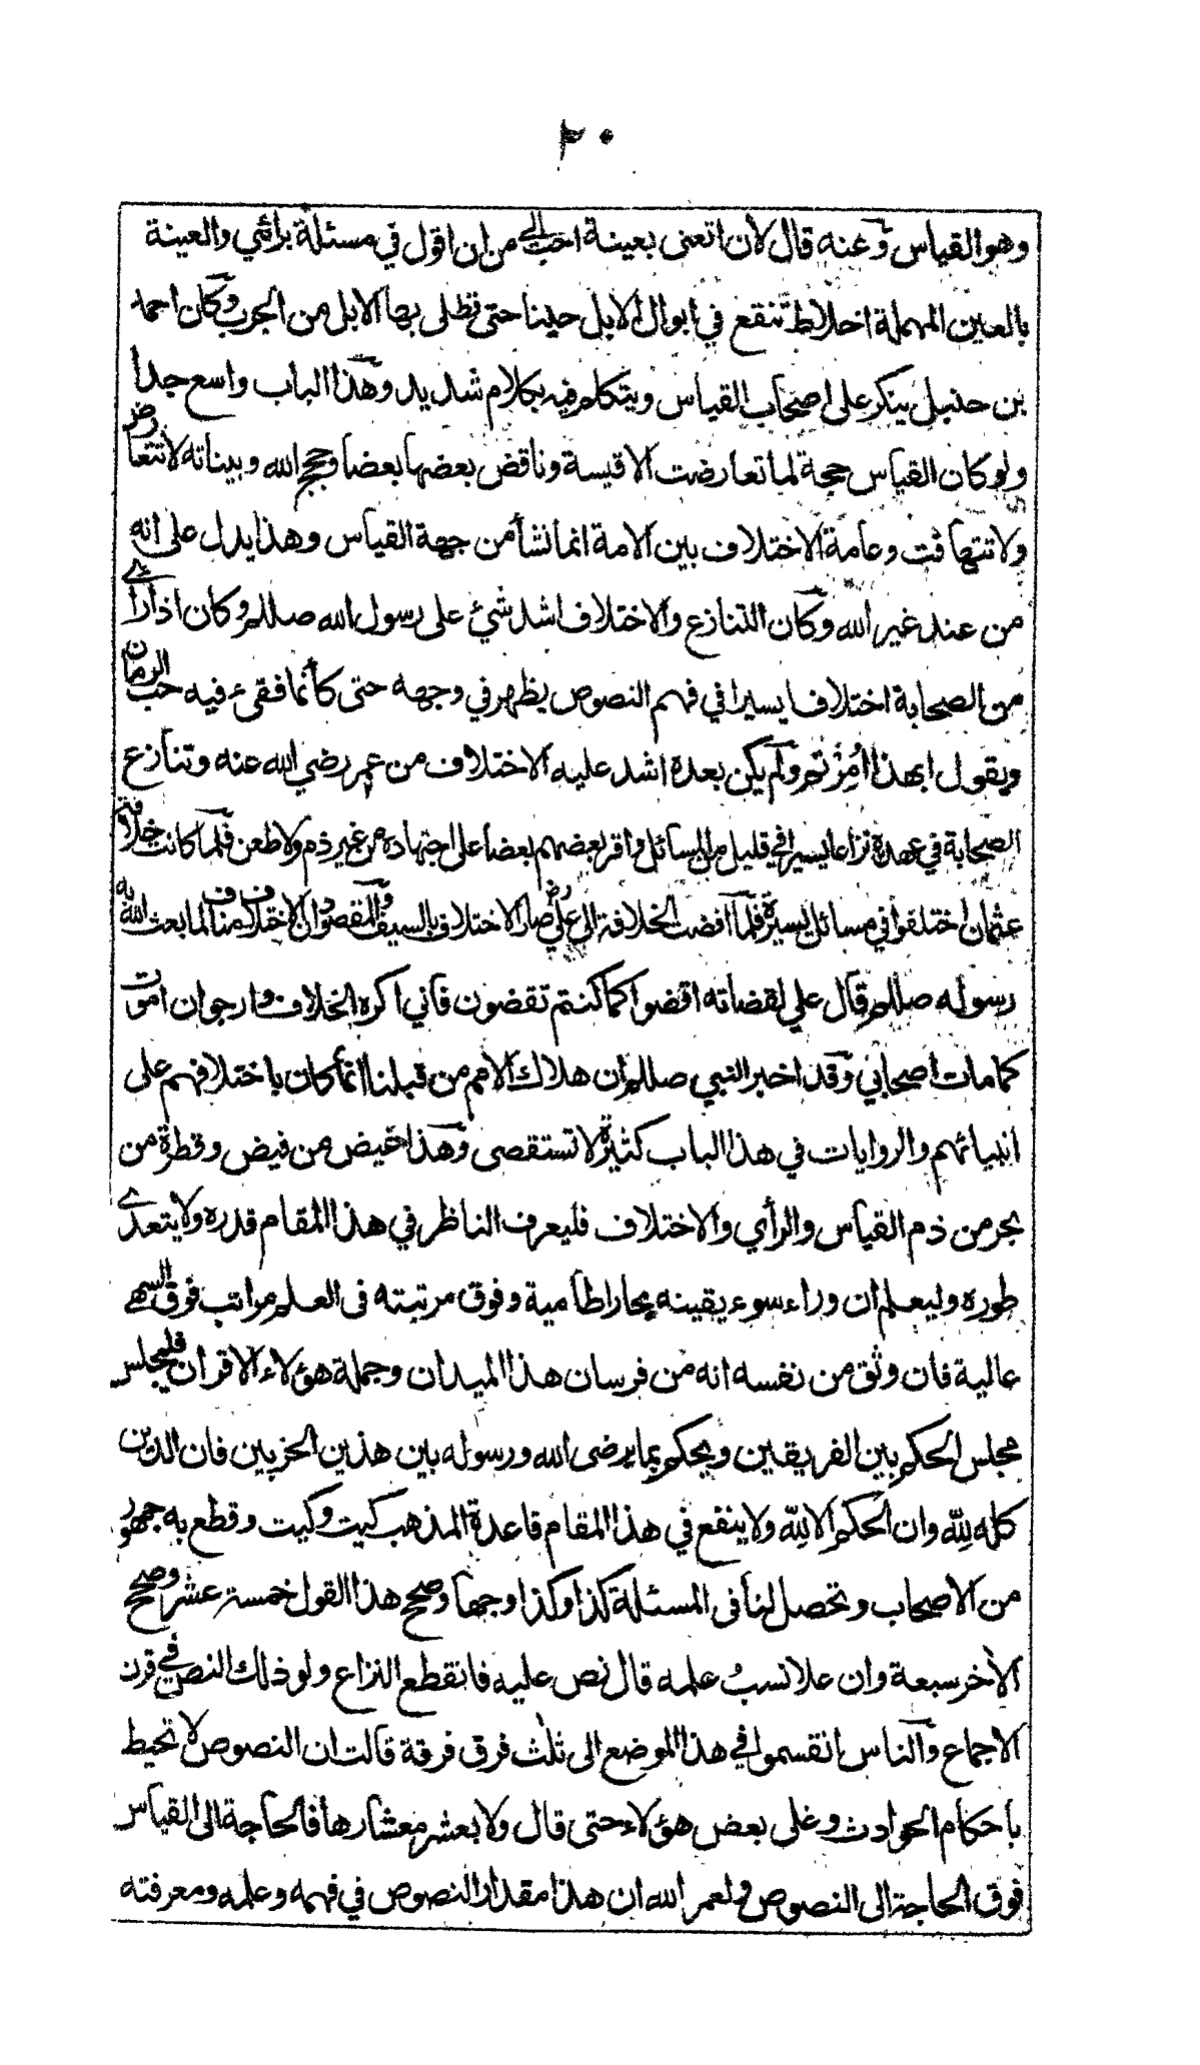 ٢٠
وهو القياس وعنه قال لأن اتعنى بعينة احب الي من ان اقول في مسئلة برائي والعينة
بالعين المهملة اخلاط تنقع في ابوال الابل حينا حتى تطلى بها الابل من الجرب وكان احمد
بن حنبل ينكر على اصحاب القياس ويتكلم فيه بكلام شديد وهذا الباب واسع جدا
ولو كان القياس حجة لما تعارضت الاقيسة وناقض بعضها بعضا وحجج الله وبيناته لا تتعارض
ولا تتهافت وعامة الاختلاف بين الامة انما نشأ من جهة القياس وهذا يدل على انه
من عند غير الله وكان التنازع والاختلاف اشد شيئ على رسول الله صللم وكان اذا رأى
من الصحابة اختلافا يسيرا في فهم النصوص يظهر في وجهه حتى كأنما فقىء فيه حب الرمان
ويقول ابهذا اُمِرْتم ولم يكن بعده اشد عليه الاختلاف من عمر رضي الله عنه وتنازع
الصحابة في عهده نزاعا يسيرا في قليل من المسائل واقر بعضهم بعضا على اجتهاده من غير ذم ولا طعن فلما كانت خلافة
عثمان اختلفوا في مسائل يسيرة فلما افضت الخلافة الى علي رض صار الاختلاف بالسيف والمقصود ان الاختلاف مناف لما بعث الله به
رسوله صللم قال علي لقضاته اقضوا كما كنتم تقضون فاني اكره الخلاف وارجو ان اموت
كما مات اصحابي وقد اخبر النبي صللم ان هلاك الامم من قبلنا انما كان باختلافهم على
انبيائهم والروايات في هذا الباب كثيرة لا تستقصى وهذا غيض من فيض وقطرة من
بحر من ذم القياس والرأي والاختلاف فليعرف الناظر في هذا المقام قدره ولا يتعدى
طوره وليعلم ان وراء سوء يقينه بحارا طامية وفوق مرتبته فى العلم مراتب فوق السهى
عالية فان وثق من نفسه انه من فرسان هذا الميدان وجملة هؤلاء الاقران فليجلس
مجلس الحكم بين الفريقين ويحكم بما يرضى الله ورسوله بين هذين الحزبين فان الدين
كله لِلّه وان الحكم الا لِلّه ولا ينفع في هذا المقام قاعدة المذهب كيت وكيت وقطع به جمهور
من الاصحاب وتحصل لنا فى المسئلة كذا وكذا وجها وصحح هذا القول خمسة عشر وصحح
الآخر سبعة وان علا نسبُ علمه قال نص عليه فانقطع النزاع ولو ذلك النص في قرن
الاجماع والناس انقسموا في هذا الموضع الى ثلث فرق فرقة قالت ان النصوص لا تحيط
بأحكام الحوادث وغلى بعض هؤلاء حتى قال ولا بعشر معشارها فالحاجة الى القياس
فوق الحاجة الى النصوص ولعمر الله ان هذا مقدار النصوص في فهمه وعلمه ومعرفته